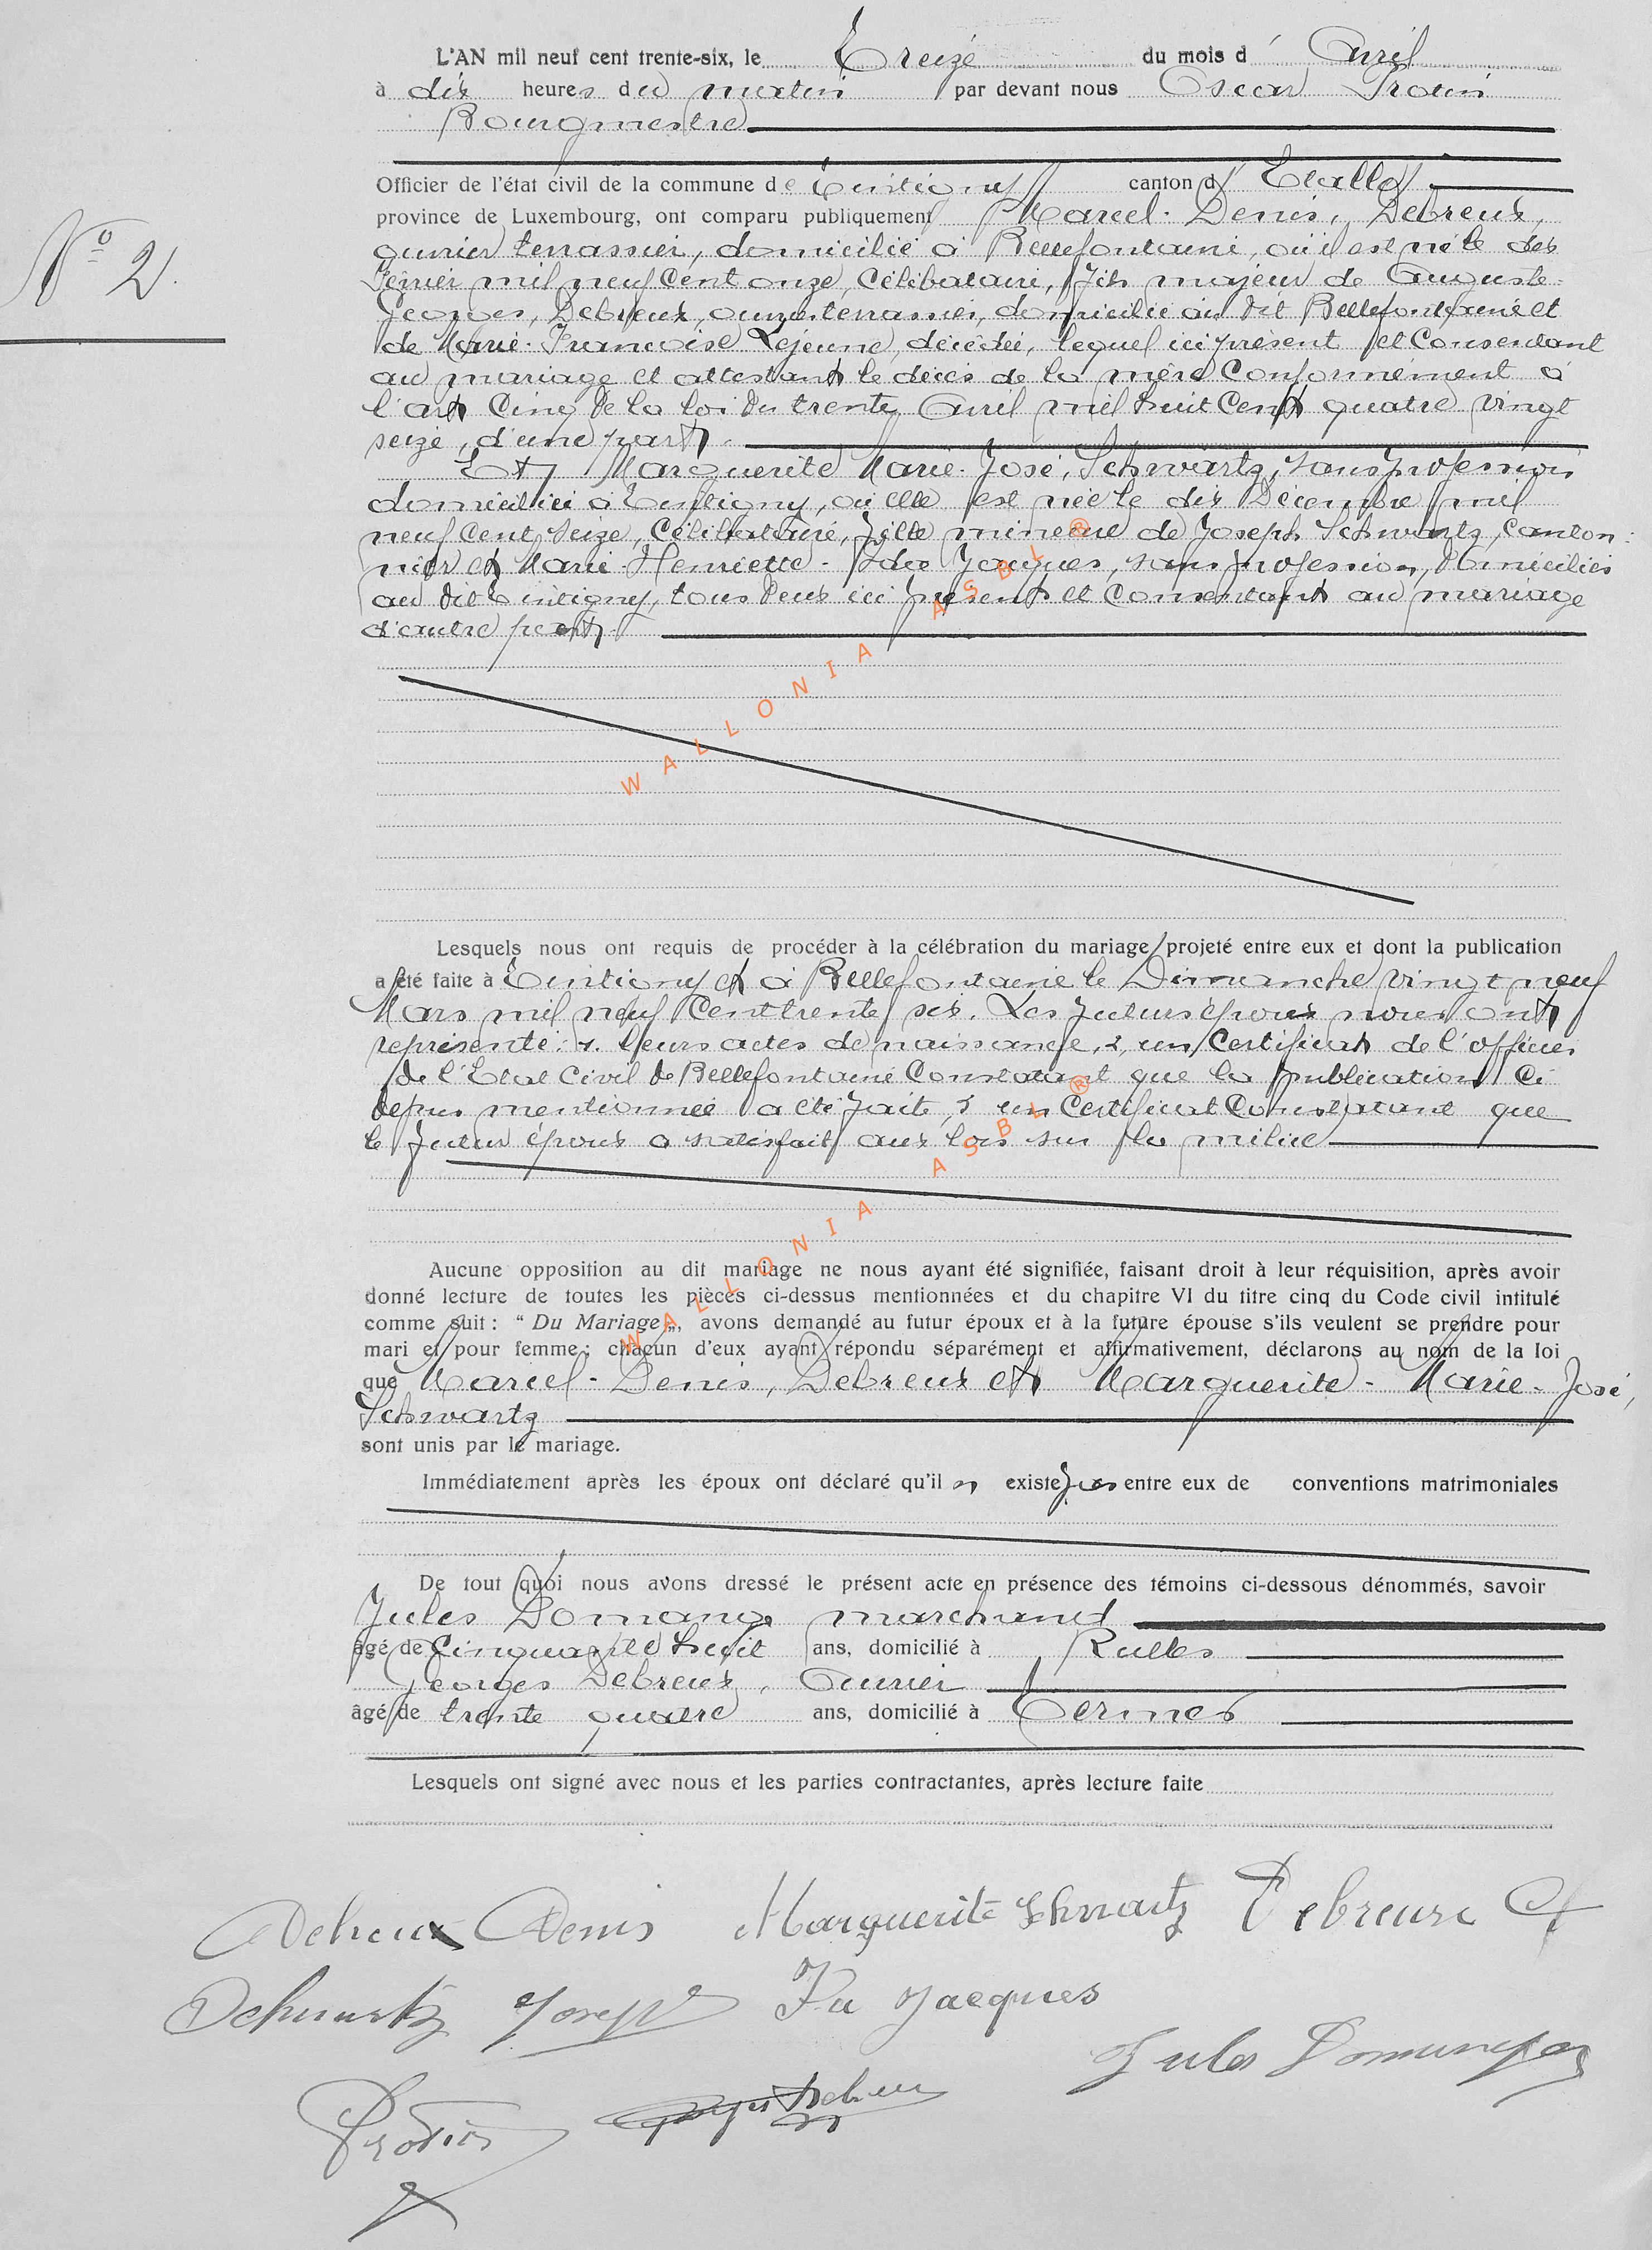 L'AN mil neuf cent trente-six, le Treize du mois d' Avril
à dix heures du matin par devant nous Oscar Protin
Bourgmestre
Officier de l'état civil de la commune de Tintigny canton d' Etalle
province de Luxembourg, ont comparu publiquement Marcel-Denis, Debreux,
N° 2.
ouvrier terrassier, domicilié à Bellefontaine, où il est né le dix
Février mil neuf cent onze, célibataire, fils majeur de Auguste-
Georges, Debreux, ouvrier terrassier, domicilié au dit Bellefontaine et
de Marie-Françoise Lejeune, décédée, lequel ici présent et consentant
au mariage et attestant le décès de la mère conformément à
l'art cinq de la loi du trente Avril mil huit cent quatre vingt
seize, d'une part.
Et Marguerite Marie-José, Schwartz, sans profession
domiciliée à Tintigny, où elle est née le dix Décembre mil
neuf cent seize, célibataire, fille mineure de Joseph Schwartz, canton-
nier et Marie-Henriette- Jacques, sans profession, domiciliés
au dit Tintigny, tous deux ici présents et consentants au mariage
d'autre part.
WALLONIA ASBL ®
Lesquels nous ont requis de procéder à la célébration du mariage projeté entre eux et dont la publication
a été faite à Tintigny et à Bellefontaine le Dimanche vingt neuf
Mars mil neuf cent trente six. Les futurs époux nous ont
représenté: 1. leurs actes de naissance, 2, un certificat de l'officier
de l'Etat Civil de Bellefontaine constatant que la publication ci
depus mentionnée a été faite, 3 un certificat constatant que
le futur époux a satisfait aux lois sur la milice
WALLONIA ASBL ®
Aucune opposition au dit mariage ne nous ayant été signifiée, faisant droit à leur réquisition, après avoir
donné lecture de toutes les pièces ci-dessus mentionnées et du chapitre VI du titre cinq du Code civil intitulé
comme suit : “ Du Mariage „, avons demandé au futur époux et à la future épouse s'ils veulent se prendre pour
mari et pour femme ; chacun d'eux ayant répondu séparément et affirmativement, déclarons au nom de la loi
que Marcel-Denis, Debreux et Marguerite-Marie-José,
Schwartz
sont unis par le mariage.
Immédiatement après les époux ont déclaré qu'il n existe pas entre eux de conventions matrimoniales
De tout quoi nous avons dressé le présent acte en présence des témoins ci-dessous dénommés, savoir
Jules Domange marchand
âgé de Cinquante huit ans, domicilié à Rulles
Georges Debreux, Ouvrier
âgé de trente quatre ans, domicilié à Termes
Lesquels ont signé avec nous et les parties contractantes, après lecture faite
Debreux Denis Marguerite Schwartz Debreux A
Schwartz Joseph Jacques
Jules Domange
Protin Debreux